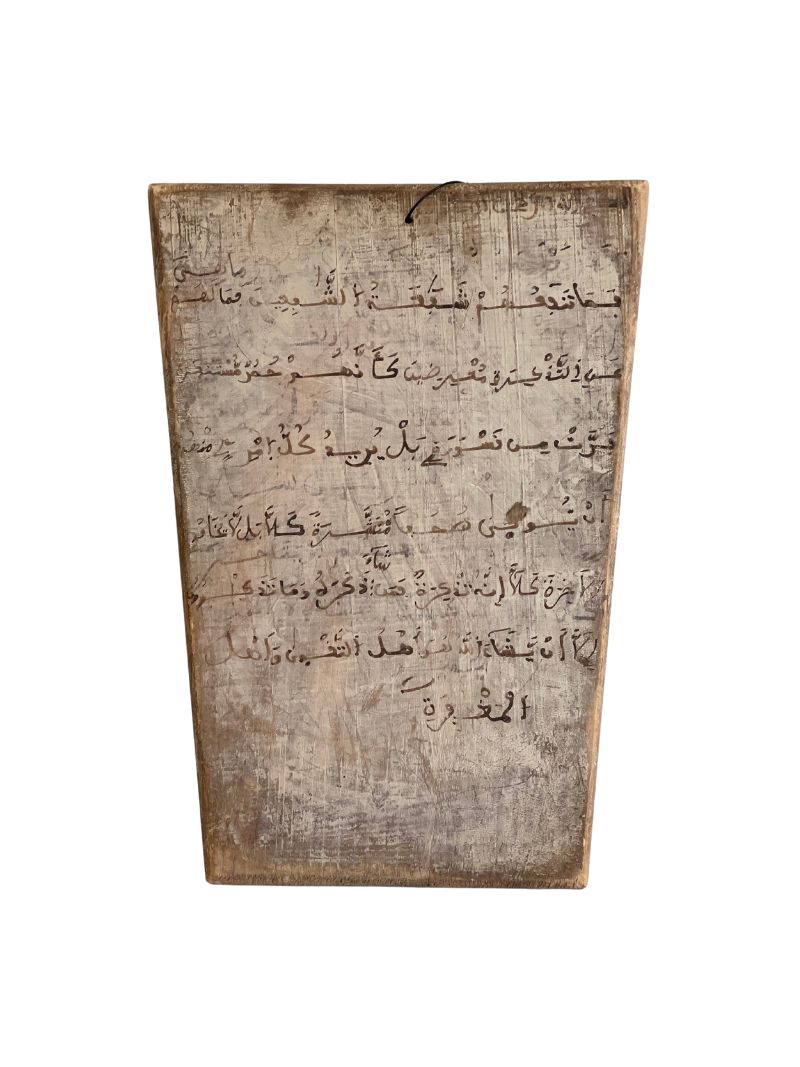 فَمَا تَنفَعُهُمْ شَفَعَةُ الشَّفِعِينَ فَمَا لَهُمْ
عَنِ التَّذْكِرَةِ مُعْرِضِينَ كَأَنَّهُمْ حُمُرٌ مُّسْتَنفَرَة
فَرَّتْ مِن قَسْوَرَةٍ بَلْ يُرِيدُ كُلُّ امْرِئٍ مِّنْهُمُ
أَنْ يُّوتَى صُحُفاً مُّنَشَّرَةً كَلَّا بَل لَّا يَخَافُونَ
الَاخِرَةَ كَلَّا إِنَّهُ تَذْكِرَةٌ فَمَن شَآءَ ذَكَرَهُ وَمَا تَذْكُرُونَ
إِلَّا أَنْ يَّشَآءَ اللَّهُ هُوَ أَهْلُ التَّقْوَى وَأَهْلُ
الْمَغْفِرَةِ